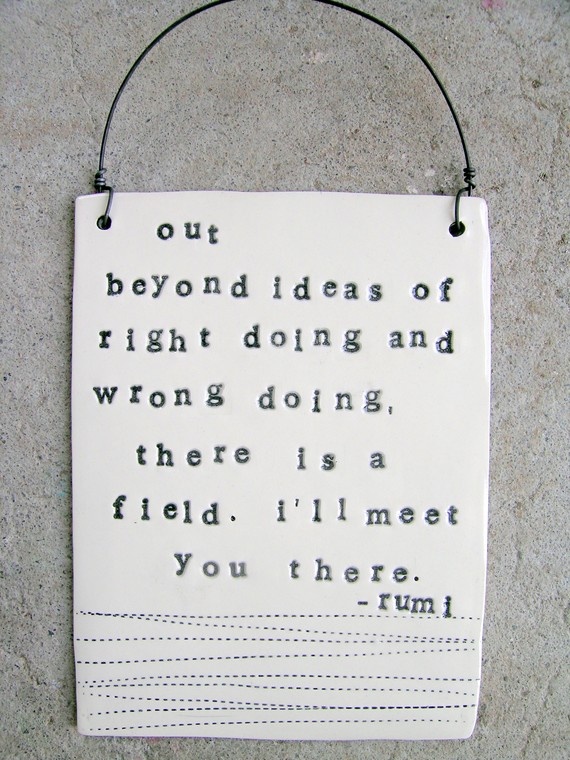 out
beyond ideas of
right doing and
wrong doing,
there is a
field. i'll meet
you there.
-rumi